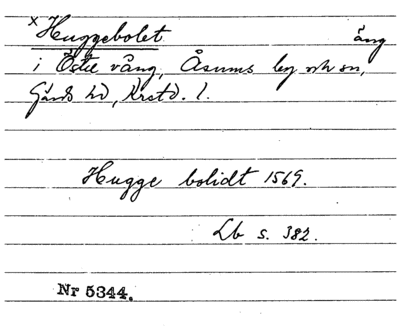 × Huggebolet äng
i Östre vång, Åsums by och sn,
Gärds hd, Krstd. l.
Hugge bolidt 1569.
Lb s. 382.
Nr 5344.